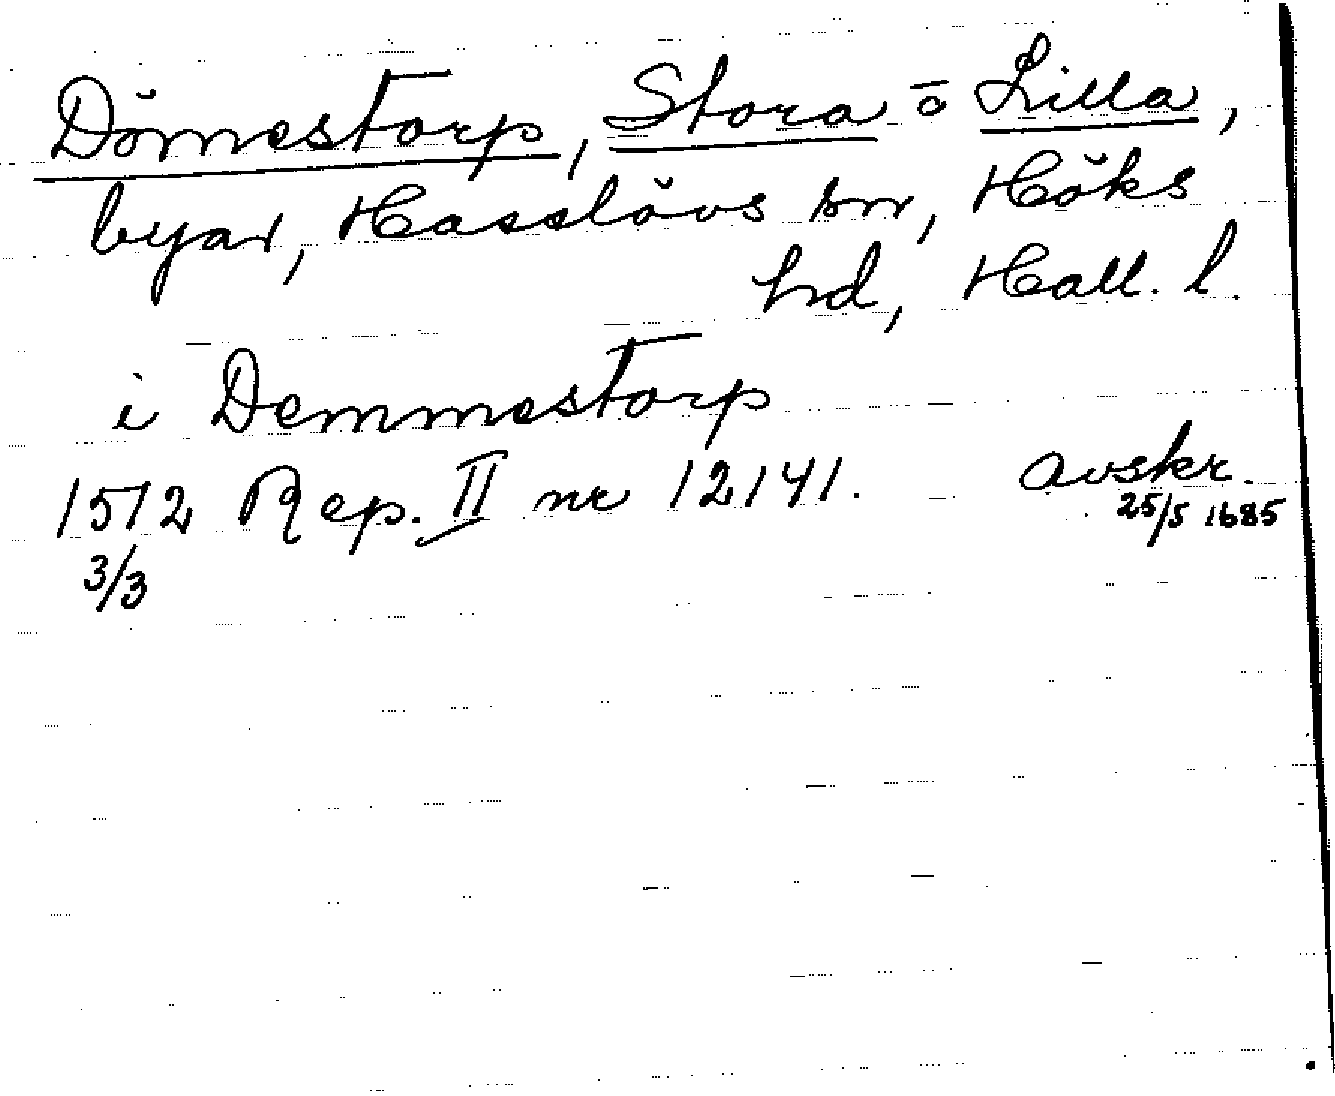 Dömestorp, Stora o Lilla,
byar, Hasslövs sn, Höks
hd, Hall. l.
i Demmestorp
1512 Rep. II nr 12141. avskr.
3/3 25/5 1685